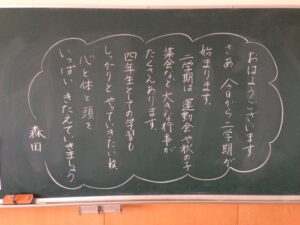 おはようございます
さあ 今日から二学期が
始まります。
二学期は 運動会や秋の子
集会など大きな行事が
たくさんあります。
四年生としての学習も
しっかりとやっていきたいね。
心と体と頭を
いっぱいきたえていきましょう
森田